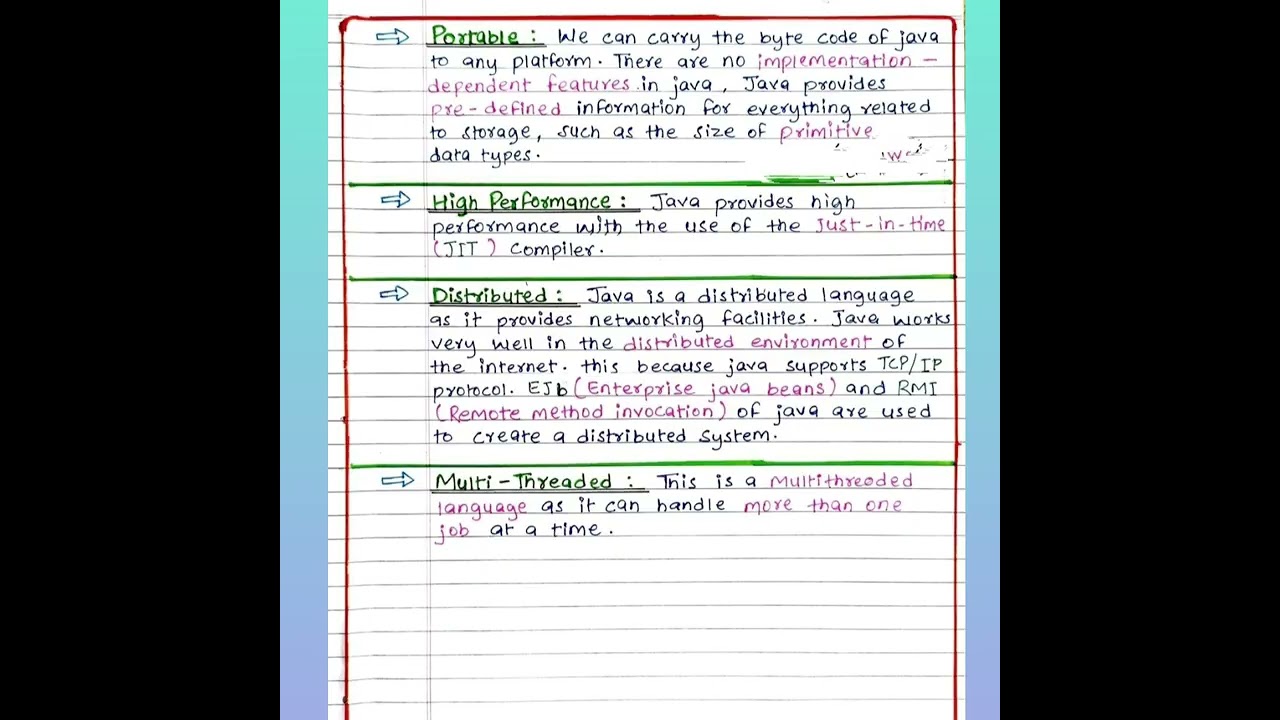 ⇨ Portable : We can carry the byte code of java
to any platform. There are no implementation -
dependent features in java, Java provides
pre-defined information for everything related
to storage, such as the size of primitive
data types.
⇨ High Performance : Java provides high
performance with the use of the Just-in-time
(JIT) Compiler.
⇨ Distributed : Java is a distributed language
as it provides networking facilities. Java works
very well in the distributed environment of
the internet. this because java supports TCP/IP
protocol. EJb (Enterprise java beans) and RMI
(Remote method invocation) of java are used
to create a distributed system.
⇨ Multi-Threaded : This is a multithreoded
language as it can handle more than one
job at a time.